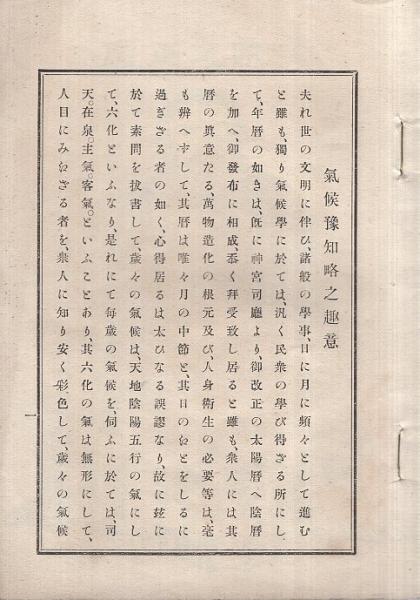 氣候豫知略之趣意
夫れ世の文明に伴ひ、諸般の學事、日に月に頻々として進む
と雖も、獨り氣候學に於ては、汎く民衆の學び得ざる所にし
て、年曆の如きは、旣に神宮司廳より、御改正の太陽曆へ陰曆
を加へ、御發布に相成、忝く拜受致し居ると雖も、衆人には其
曆の眞意たる、萬物造化の根元及び、人身衛生の必要等は、毫
も辨へずして、其曆は唯々月の中節と、其日のゑとをしるに
過ぎざる者の如く、心得居るは太ひなる誤謬なり、故に玆に
於て素問を拔書して、歲々の氣候は、天地陰陽五行の氣にし
て、六化といふなり、是れにて每歲の氣候を、伺ふに於ては、司
天。在泉。主氣。客氣。といふことあり、其六化の氣は無形にして、
人目にみゑざる者を、衆人に知り安く彩色して歲々の氣候